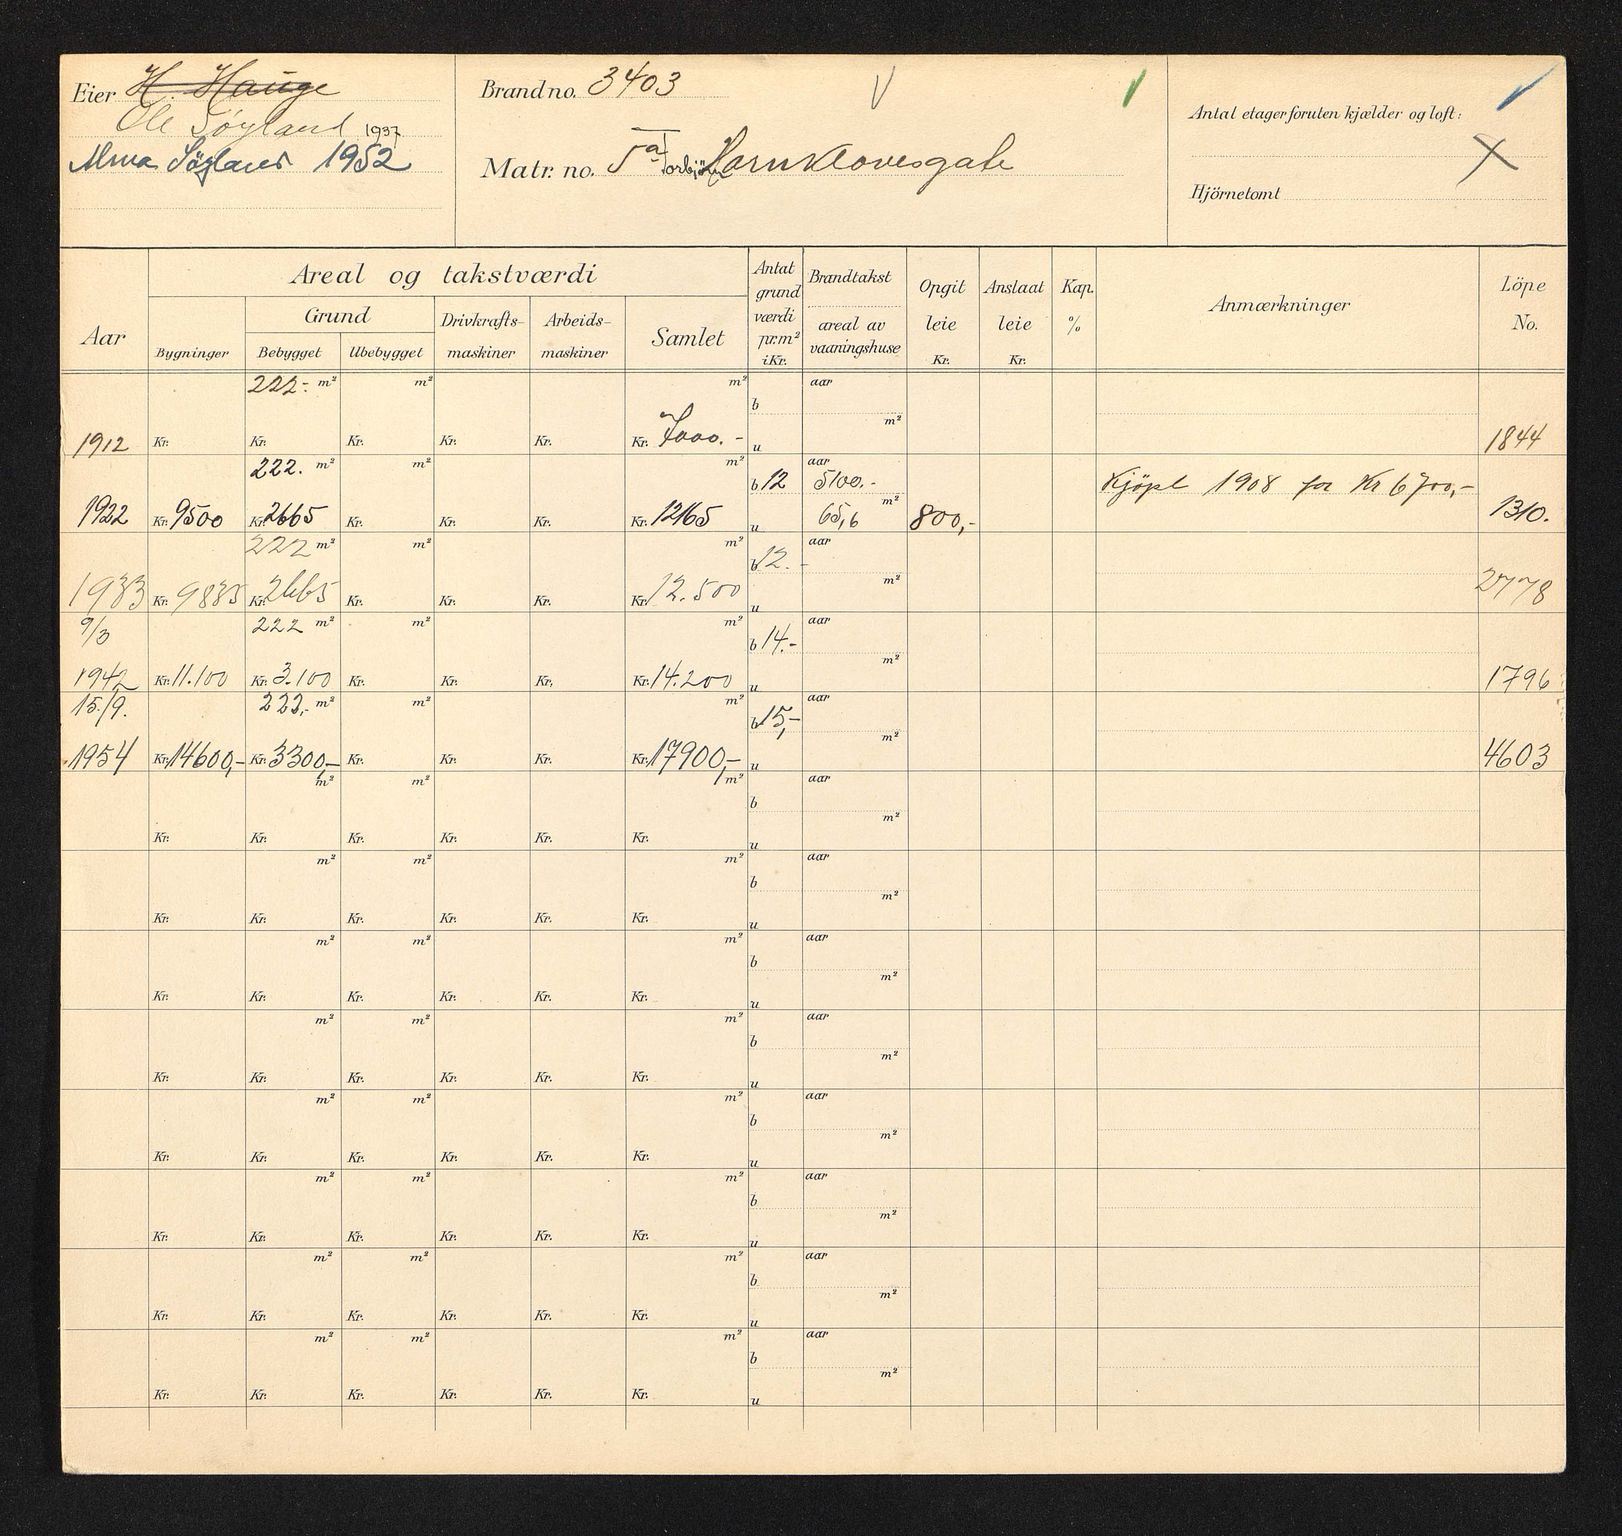 Eier H. Hauge
Ole Søyland 1937
Alma Søyland 1952
Brandno. 3403
Matr. no. 5a Torbjörn Hornklovesgate
Antal etager foruten kjælder og loft:
Hjörnetomt
Aar
Areal og takstværdi
Bygninger
Grund
Bebygget
Ubebygget
Drivkrafts-maskiner
Arbeids-maskiner
Samlet
Antat grund værdi pr. m² i Kr.
Brandtakst
areal av vaaningshuse
Opgit leie Kr.
Anslaat leie Kr.
Kap. %
Anmærkninger
Löpe No.
222.- m² m² m² aar
b
m²
1912 Kr. Kr. Kr. Kr. Kr. Kr. 7000.- u 1844
222. m² m² m² aar
b 12 5100.- Kjöpt 1908 for Kr 6700,-
m²
1922 Kr. 9500 Kr. 2665 Kr. Kr. Kr. Kr. 12165 u 65,6 800,- 1310.
222 m² m² m² aar
b 12.-
m²
1933 Kr. 9835 Kr. 2665 Kr. Kr. Kr. Kr. 12.500 u 2778
9/3 222 m² m² m² aar
b 14.-
m²
1942 Kr. 11.100 Kr. 3.100 Kr. Kr. Kr. Kr. 14.200 u 1796
15/9. 222,- m² m² m² aar
b 15,-
m²
1954 Kr. 14600,- Kr. 3300,- Kr. Kr. Kr. Kr. 17900,- u 4603
m² m² m² aar
b
m²
Kr. Kr. Kr. Kr. Kr. Kr. u
m² m² m² aar
b
m²
Kr. Kr. Kr. Kr. Kr. Kr. u
m² m² m² aar
b
m²
Kr. Kr. Kr. Kr. Kr. Kr. u
m² m² m² aar
b
m²
Kr. Kr. Kr. Kr. Kr. Kr. u
m² m² m² aar
b
m²
Kr. Kr. Kr. Kr. Kr. Kr. u
m² m² m² aar
b
m²
Kr. Kr. Kr. Kr. Kr. Kr. u
m² m² m² aar
b
m²
Kr. Kr. Kr. Kr. Kr. Kr. u
m² m² m² aar
b
m²
Kr. Kr. Kr. Kr. Kr. Kr. u